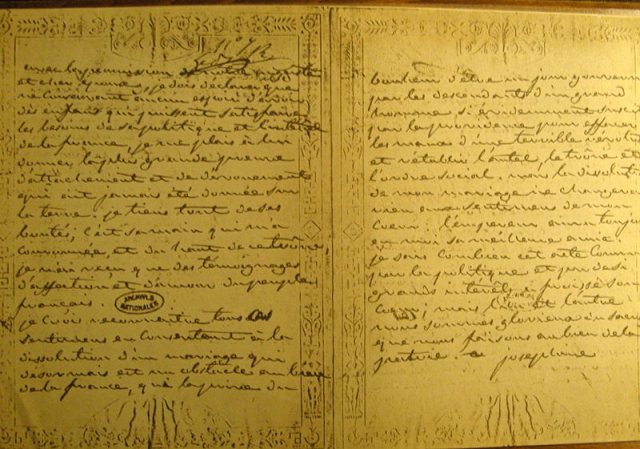 avec la permission de notre auguste
et cher époux, je dois déclarer que
ne conservant aucun espoir d'avoir
des enfans qui puissent satisfaire
les besoins de sa politique et l'intérêt
de la france, je me plais à lui
donner la plus grande preuve
d'attachement et de dévouement
qui ait jamais été donnée sur
la terre. je tiens tout de ses
bontés; c'est sa main qui m'a
couronnée, et du haut de ce trône,
je n'ai reçu que des témoignages
d'affection et d'amour du peuple
français.
ARCHIVES
NATIONALES
je crois reconnaitre tous ces
sentimens en consentant à la
dissolution d'un mariage qui
désormais est un obstacle au bien
de la france, qui la prive du
bonheur d'être un jour gouvernée
par les descendants d'un grand
homme si évidemment suscité
par la providence pour effacer
les maux d'une terrible révolution
et rétablir l'autel, le trône et
l'ordre social. mais la dissolution
de mon mariage ne changera
rien aux sentimens de mon
coeur: l'empereur aura toujours
en moi sa meilleure amie.
je sais combien cet acte commandé
par la politique et par de si
grands intérêts a froissé son
coeur; mais l'un et l'autre
nous sommes glorieux du sacrifice
que nous faisons au bien de la
patrie
josephine